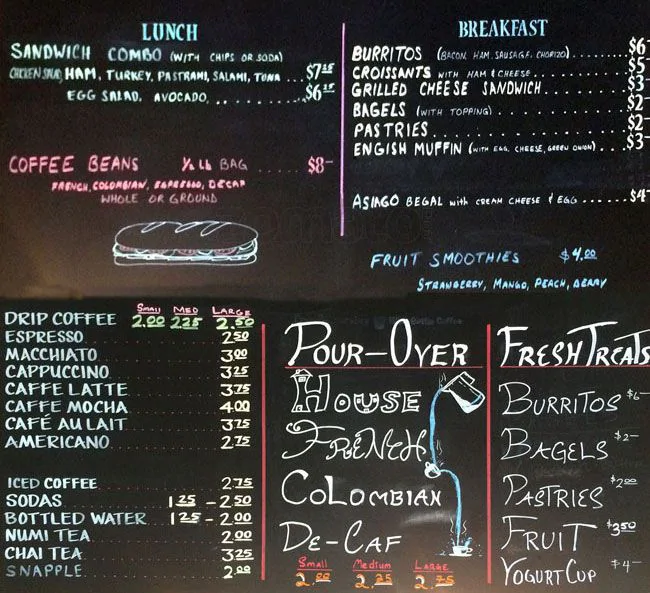 LUNCH
SANDWICH COMBO (WITH CHIPS OR SODA)
CHICKEN SALAD, HAM, TURKEY, PASTRAMI, SALAMI, TUNA ... $7.25
EGG SALAD, AVOCADO, ........ $6.25
COFFEE BEANS ½ lb BAG ..... $8-
FRENCH, COLOMBIAN, ESPRESSO, DECAF
WHOLE OR GROUND
BREAKFAST
BURRITOS (BACON, HAM, SAUSAGE, CHORIZO) ....... $6-
CROISSANTS WITH HAM & CHEESE ........ $5-
GRILLED CHEESE SANDWICH ........ $3-
BAGELS (WITH TOPPING) ........ $2-
PASTRIES ........ $2-
ENGISH MUFFIN (WITH EGG, CHEESE, GREEN ONION) ... $3-
ASIAGO BEGAL with CREAM CHEESE & EGG ..... $4-
FRUIT SMOOTHIES $4.00
STRAWBERRY, MANGO, PEACH, BERRY
Small MED LARGE
DRIP COFFEE 2.00 2.25 2.50
ESPRESSO 2.50
MACCHIATO 3.00
CAPPUCCINO 3.25
CAFFE LATTE 3.75
CAFFE MOCHA 4.00
CAFÉ AU LAIT 3.75
AMERICANO 2.75
ICED COFFEE 2.75
SODAS 1.25 - 2.50
BOTTLED WATER 1.25 - 2.00
NUMI TEA 2.00
CHAI TEA 3.25
SNAPPLE 2.00
POUR-OVER
HOUSE
FRENCH
COLOMBIAN
DE-CAF
Small Medium LARGE
2.00 2.25 2.75
FRESH TREATS
BURRITOS $6-
BAGELS $2-
PASTRIES $2.00
FRUIT $3.50
YOGURT CUP $4-